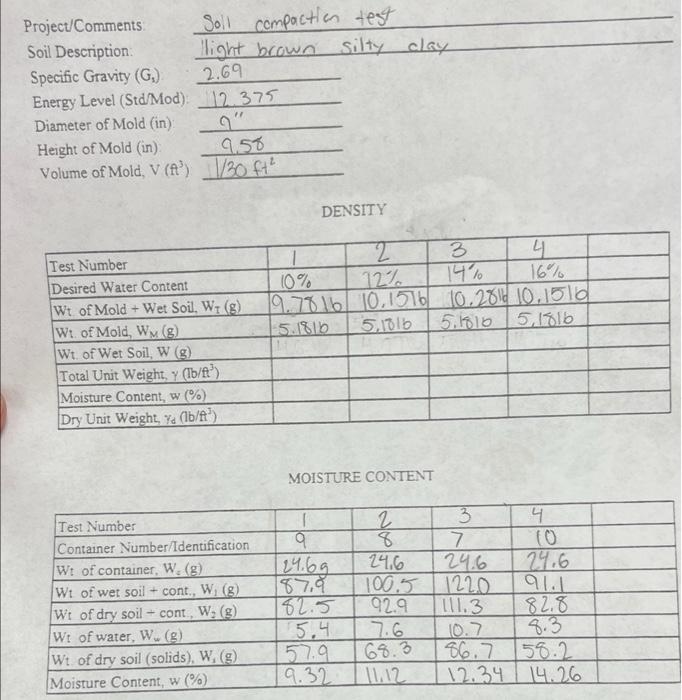 Project/Comments: Soil compaction test
Soil Description: light brown silty clay
Specific Gravity (Gs) 2.69
Energy Level (Std/Mod): 12 375
Diameter of Mold (in) 9"
Height of Mold (in) 9.58
Volume of Mold, V (ft³) 1/30 ft²
DENSITY
Test Number 1 2 3 4
Desired Water Content 10% 12% 14% 16%
Wt. of Mold + Wet Soil, WT (g) 9.78lb 10.15lb 10.28lb 10.15lb
Wt. of Mold, WM (g) 5.18lb 5.18lb 5.18lb 5.18lb
Wt. of Wet Soil, W (g)
Total Unit Weight, γ (lb/ft³)
Moisture Content, w (%)
Dry Unit Weight, γd (lb/ft³)
MOISTURE CONTENT
Test Number 1 2 3 4
Container Number/Identification 9 8 7 10
Wt of container, Wc (g) 24.6g 24.6 24.6 24.6
Wt of wet soil + cont., W1 (g) 87.9 100.5 122.0 91.1
Wt of dry soil + cont., W2 (g) 82.5 92.9 111.3 82.8
Wt of water, Ww (g) 5.4 7.6 10.7 8.3
Wt. of dry soil (solids), Ws (g) 57.9 68.3 86.7 58.2
Moisture Content, w (%) 9.32 11.12 12.34 14.26